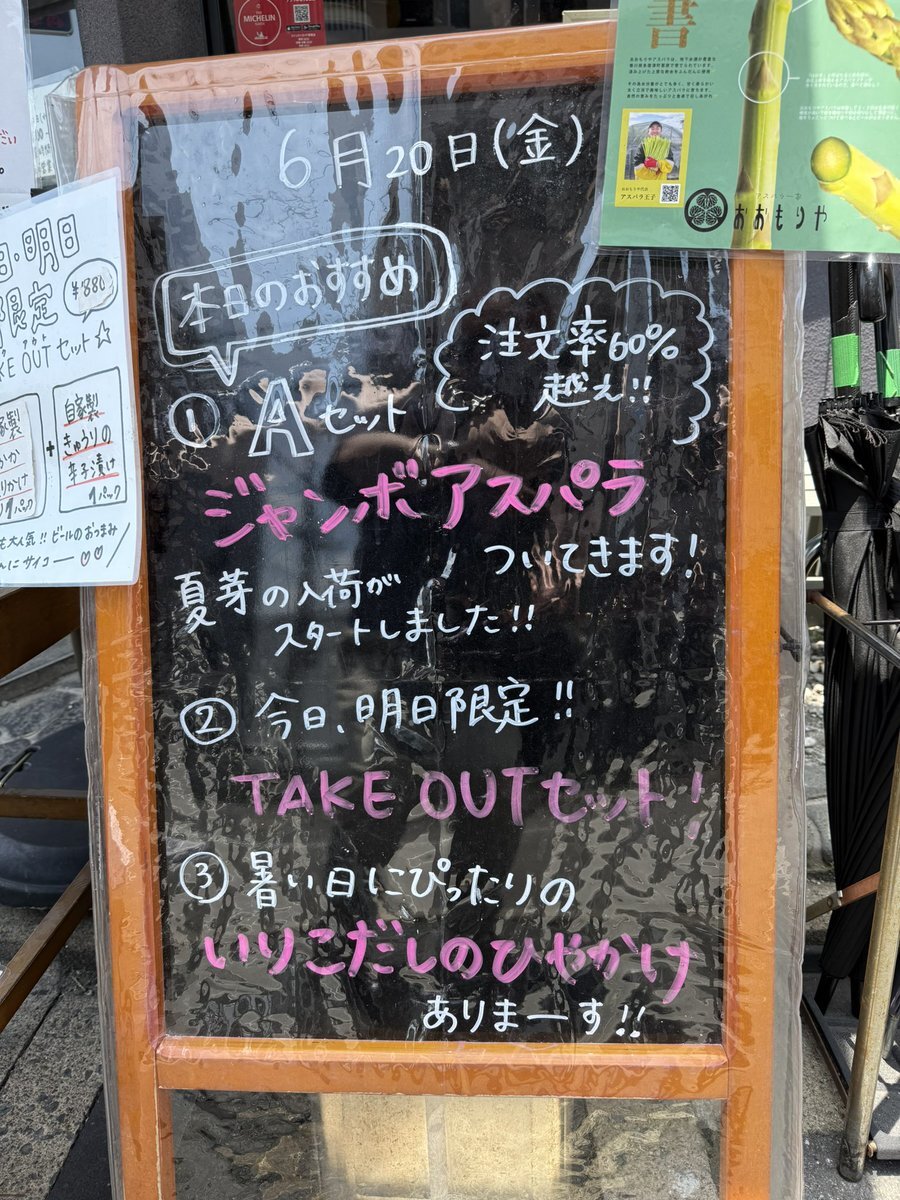 MICHELIN
6月20日(金)
本日のおすすめ
注文率60%
越え!!
① Aセット
ジャンボアスパラ
ついてきます!
夏芽の入荷が
スタートしました!!
② 今日、明日限定!!
TAKE OUTセット!
③ 暑い日にぴったりの
いりこだしのひやかけ
ありまーす!!
日・明日
限定
¥880
KE OUTセット☆
自家製
きゅうりの
辛子漬け
1パック
も大人気!! ビールのおつまみ
にサイコー♡♡
書
おおもりや代表
アスパラ王子
アスパラ一家
おおもりや